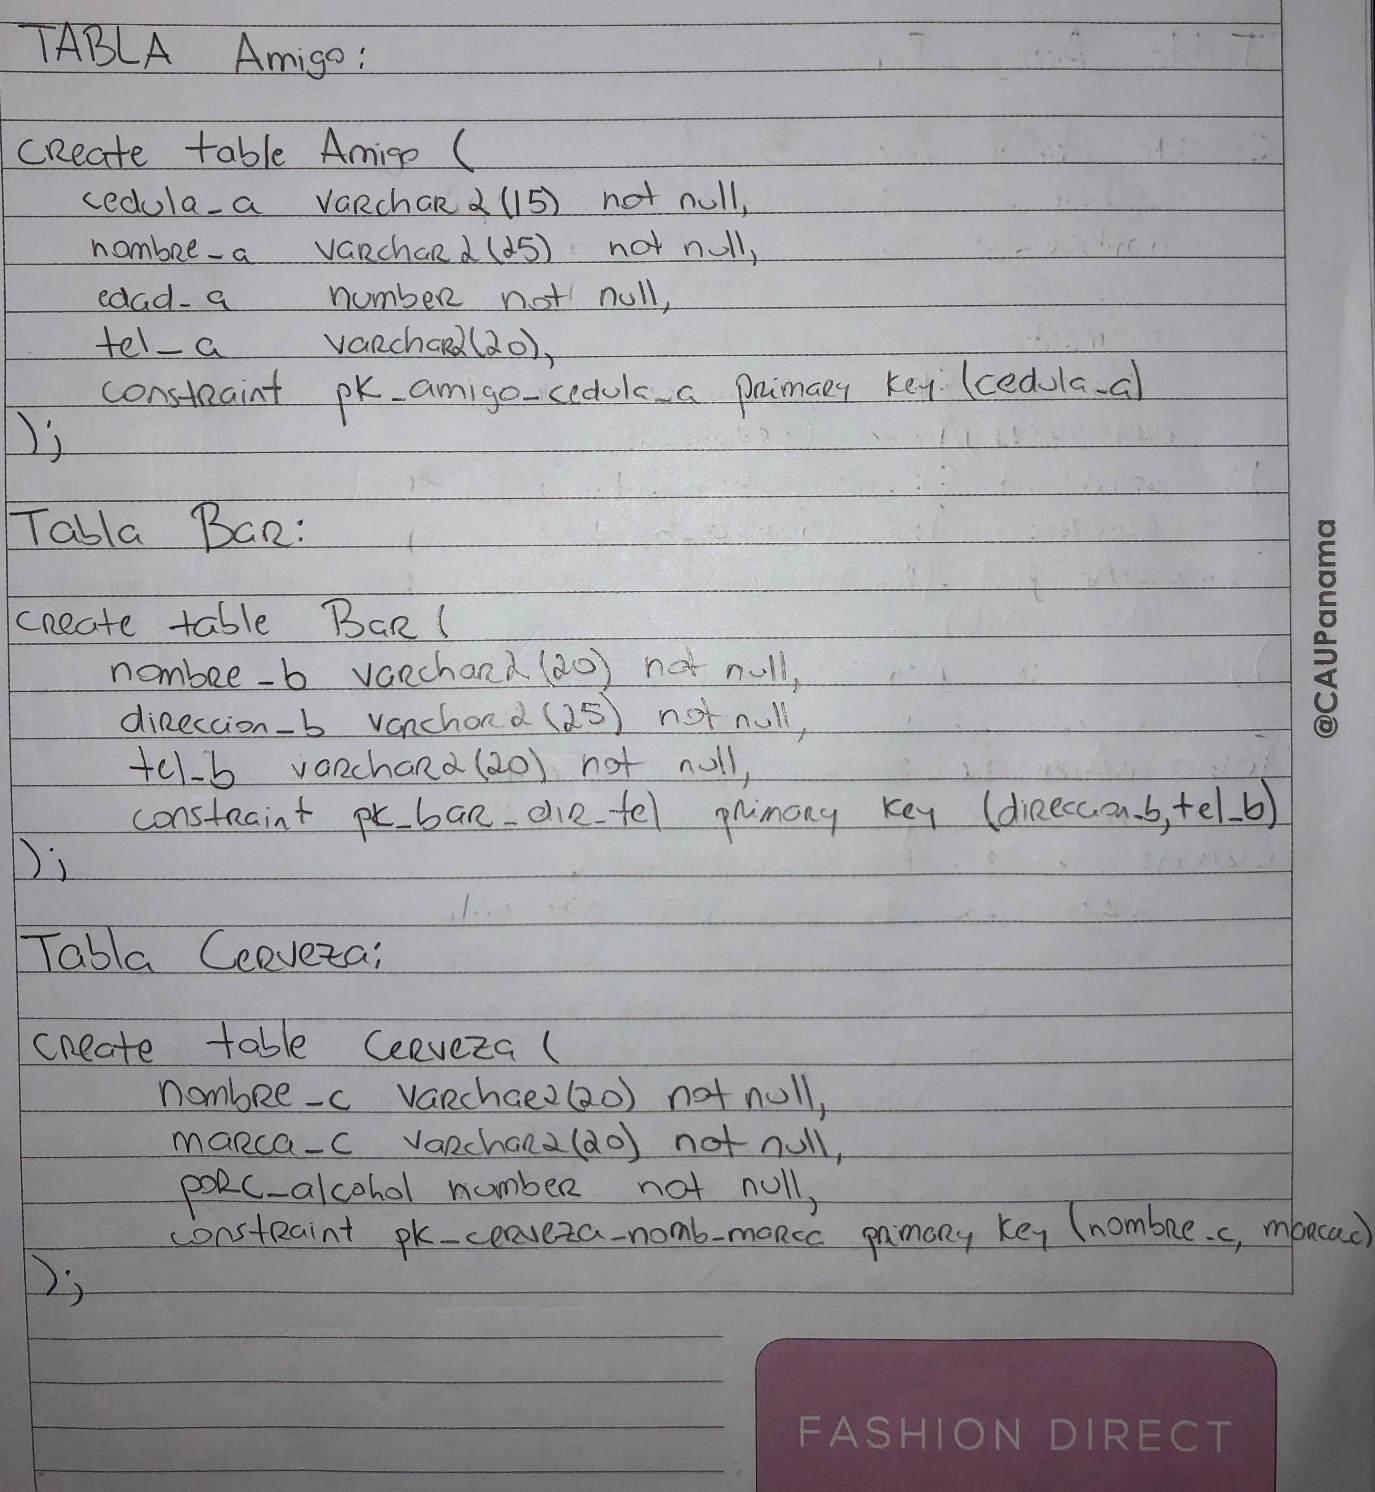 TABLA Amigo:
create table Amigo (
cedula_a varchar2(15) not null,
nombre_a varchar2(25) not null,
edad_a number not null,
tel_a varchar2(20),
constraint pk_amigo_cedula_a primary key (cedula_a)
);
Tabla Bar:
create table Bar (
nombre_b varchar2(20) not null,
direccion_b varchar2(25) not null,
tel_b varchar2(20) not null,
constraint pk_bar_dir_tel primary key (direccion_b, tel_b)
);
Tabla Cerveza:
create table Cerveza (
nombre_c varchar2(20) not null,
marca_c varchar2(20) not null,
porc_alcohol number not null,
constraint pk_cerveza_nomb_marca primary key (nombre_c, marcac)
);
@CAUPanama
FASHION DIRECT